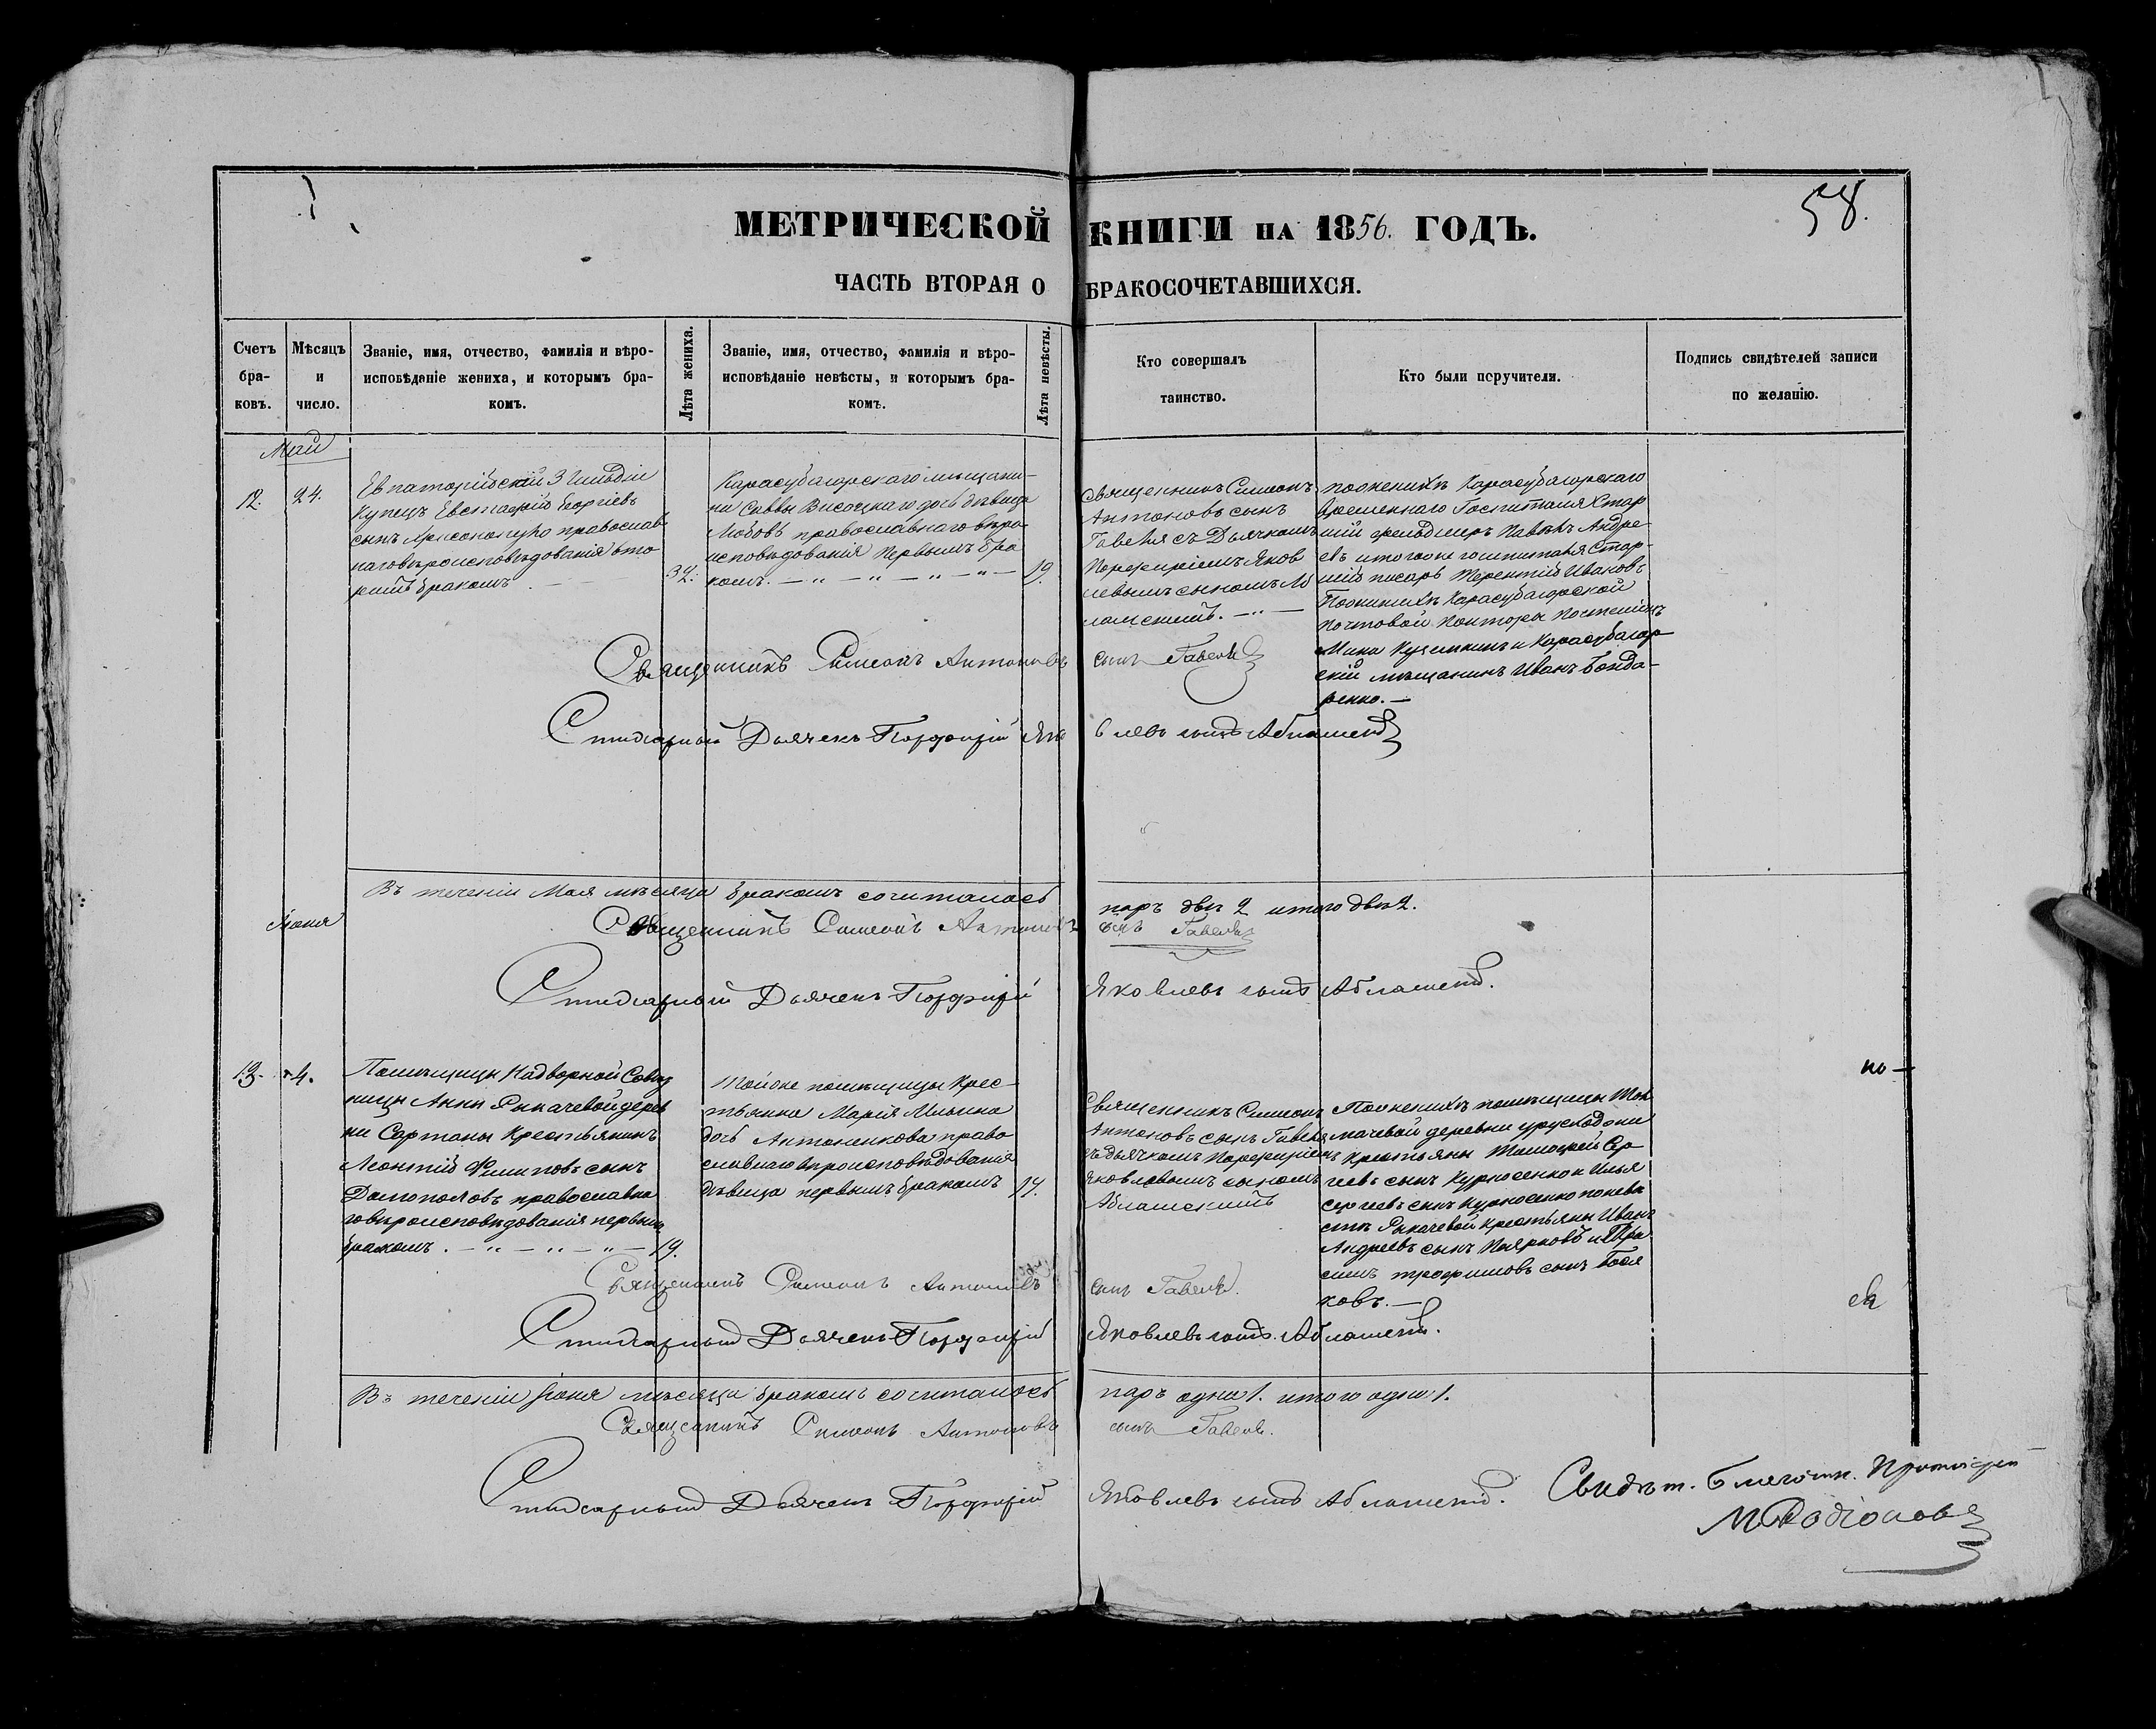 58.
МЕТРИЧЕСКОЙ КНИГИ НА 1856. ГОДЪ.
ЧАСТЬ ВТОРАЯ О БРАКОСОЧЕТАВШИХСЯ.
Счетъ бра-
ковъ.
Мѣсяцъ
и
число.
Званіе, имя, отчество, фамилія и вѣро-
исповѣданіе жениха, и которымъ бра-
комъ.
Лѣта жениха.
Званіе, имя, отчество, фамилія и вѣро-
исповѣданіе невѣсты, и которымъ бра-
комъ.
Лѣта невѣсты.
Кто совершалъ
таинство.
Кто были поручители.
Подпись свидѣтелей записи
по желанію.
Май
12.
24.
Евпаторійскій 3 Гильдіи
Купецъ Евстафій Георгіевъ
сынъ православ
наго вѣроисповѣдованія вто
рымъ бракомъ
32.
Карасубазарскаго мѣщани-
на Саввы Висоцкаго дочь дѣвица
Любовь православнаго вѣро
исповѣдованія первымъ бра
комъ. — „ — „ — „ — „ —
19.
Священникъ Симеонъ
Антоновъ сынъ
Гавеля съ Дьячкомъ
Порфиріемъ Яков
левымъ сыномъ Аб
ламскимъ. — „ —
по женихѣ Карасубазарскаго
временнаго Госпиталя Стар
шій фельдшеръ Павелъ Андре
евъ и того же госпиталя Стар-
шій писарь Терентій Ивановъ
По невѣстѣ Карасубазарской
почтовой Конторы Почталіонъ
Мина и Карасубазар
скій мѣщанинъ Иванъ Бонда-
ренко. —
Священникъ Симеонъ Антоновъ сынъ Гавель
Стихарный Дьячекъ Порфирій Яковлевъ сынъ Абламскій
Въ теченіи Мая мѣсяца бракомъ сочиталось паръ двѣ 2 итого двѣ 2.
Іюня
Священникъ Симеонъ Антоновъ сынъ Гавель
Стихарный Дьячекъ Порфирій Яковлевъ сынъ Абламскій.
13.
4.
Помѣщицы Надворной Совѣт
ницы Анны Рыкачевой дерев
ни Сартаны Крестьянинъ
Леонтій Филиповъ сынъ
Долгополовъ православна
го вѣроисповѣдованія первымъ
бракомъ. — „ — „ — „ —
19.
Той же помѣщицы Крес-
тьянка Марія Ильина
дочь Антоненкова право
славнаго вѣроисповѣдованія
дѣвица первымъ бракомъ
17.
Священникъ Симеонъ
Антоновъ сынъ Гавеля
съ дьячкомъ Порфиріемъ
Яковлевымъ сыномъ
Абламскимъ
По женихѣ помѣщицы
деревни
Крестьяны Сер
геевъ сынъ Курносенко и Илья
Сергеевъ сынъ Курносенко по невѣ
стѣ Рыкачевой крестьяны Иванъ
Андреевъ сынъ и
Трофимовъ сынъ
ковъ. —
но —
Священникъ Симеонъ Антоновъ сынъ Гавель.
Стихарный Дьячекъ Порфирій Яковлевъ сынъ Абламскій.
Въ теченіи Іюня мѣсяца бракомъ сочиталось паръ одна 1. итого одна 1.
Священникъ Симеонъ Антоновъ сынъ Гавель.
Стихарный Дьячекъ Порфирій Яковлевъ сынъ Абламскій.
Свидѣт. Благочин. Протоіерей
М Родіоновъ